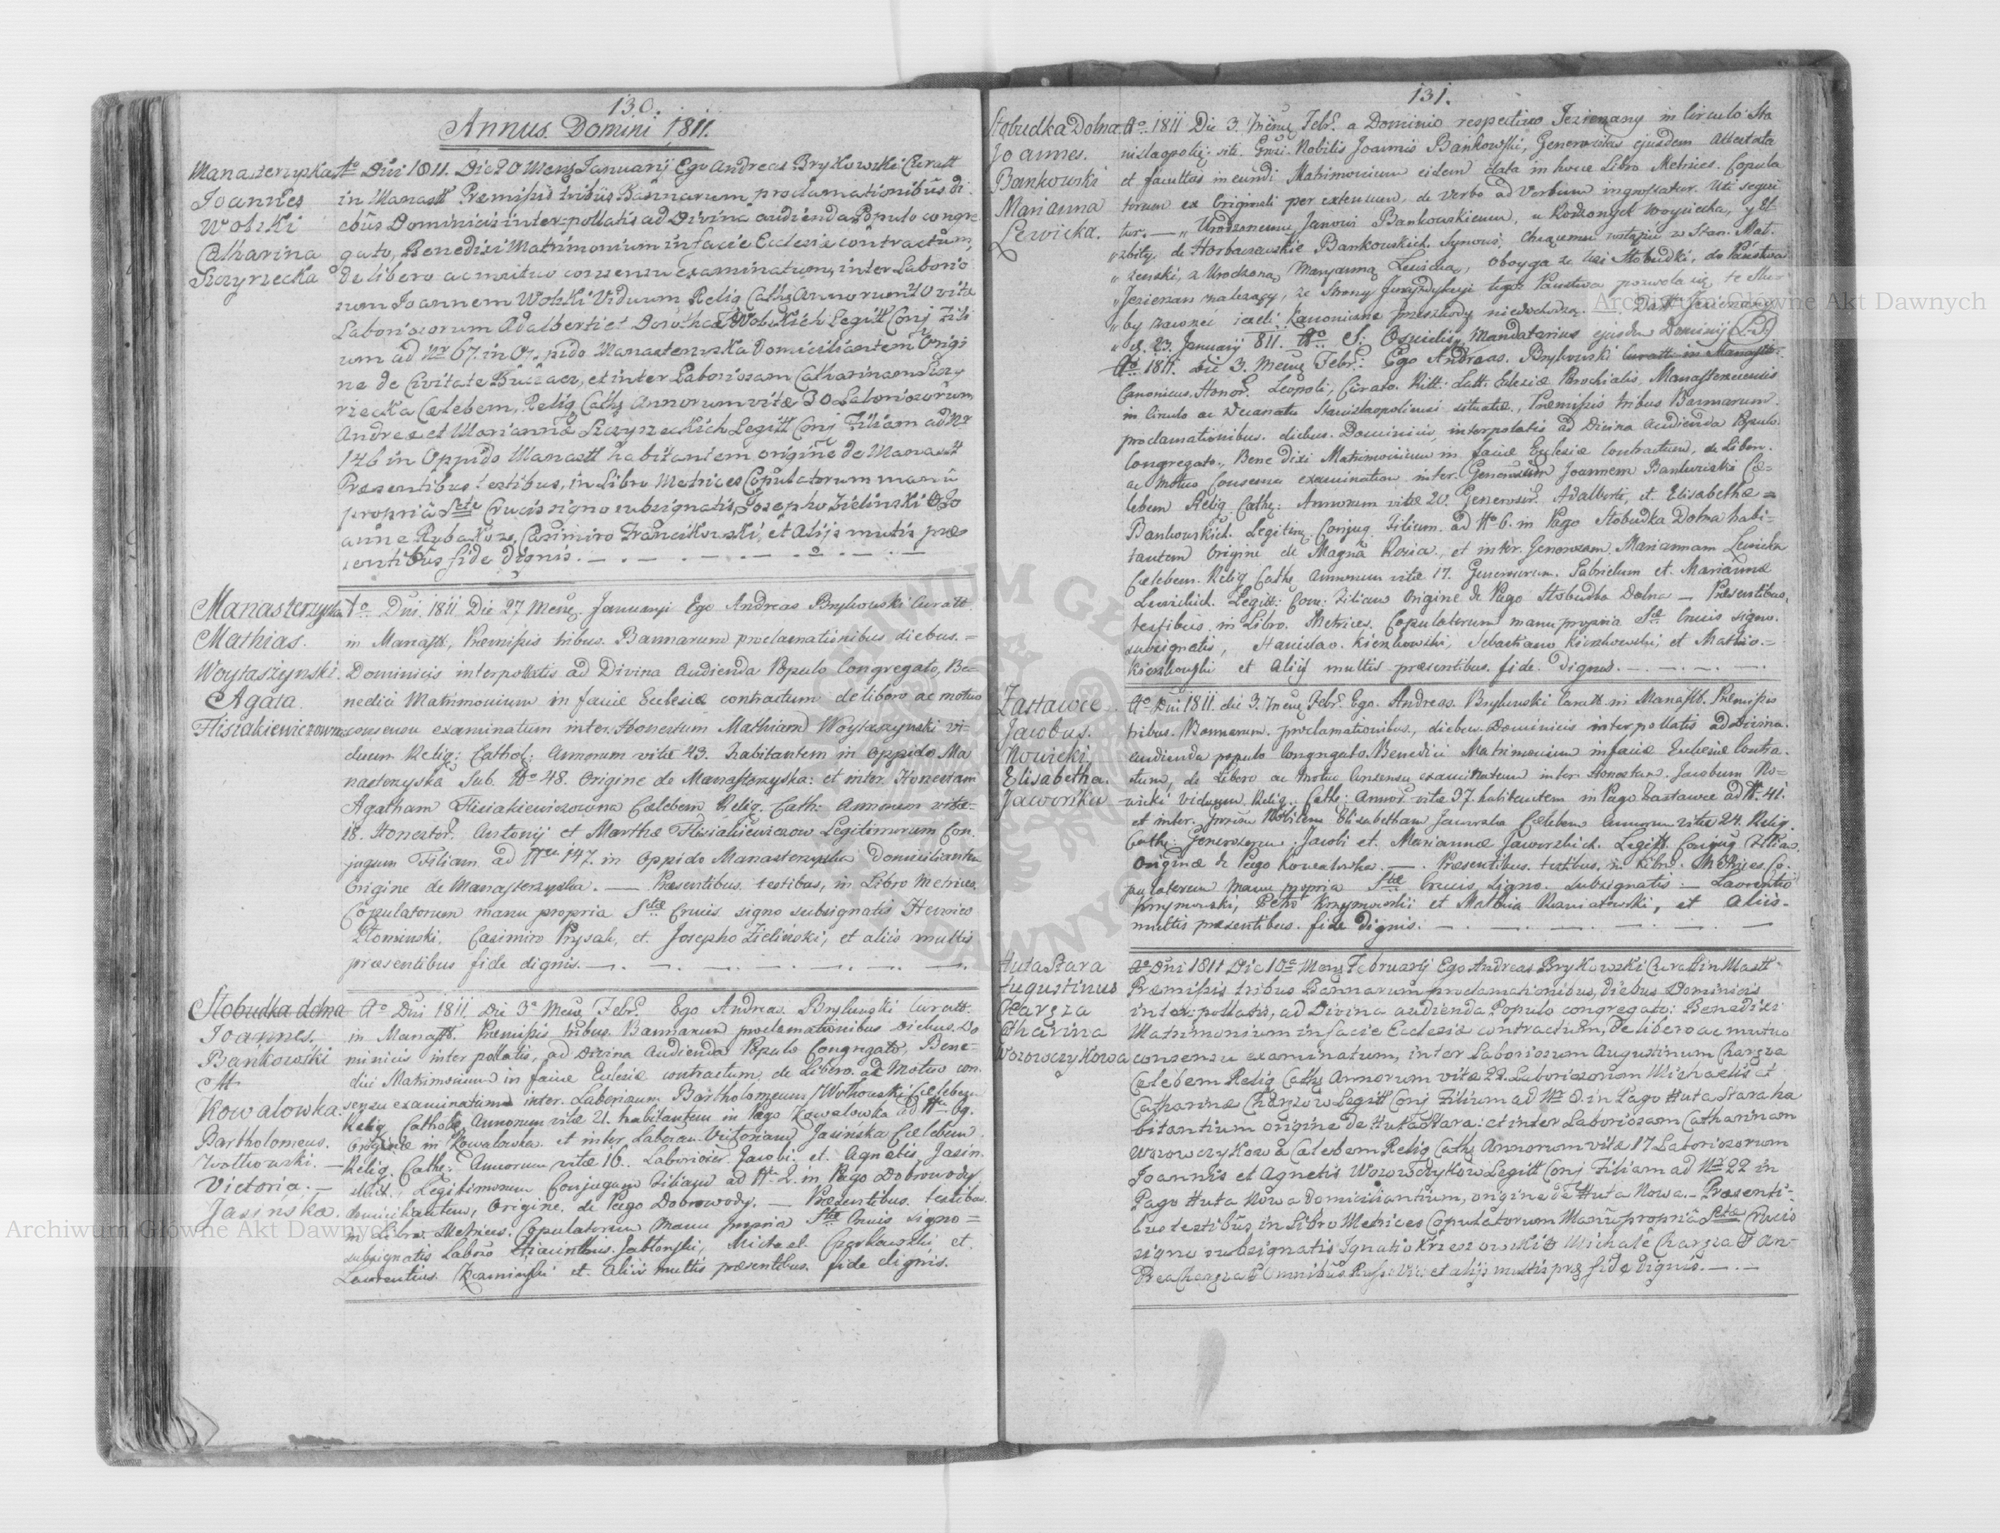 130.
Annus Domini 1811.
Manasterzyska
Joannes
Wolski
Catharina
Szzyrzecka
Ao Dni 1811. Die 20 Mens Januarij Ego Andreas Brykowski Curatt
in Manastt Præmissis tribus Bannarum, proclamationibus di-
ebus Dominicis interpollatis ad Divina audienda Populo congre
gato, Benedixi Matrimonium in facie Ecclesiæ contractum,
de libero ac mutuo consensu examinatum, inter Laborio
sum Joannem Wolski Viduum Relig Cath Annorum 40 vitæ
Laboriosorum Adalberti et Dorothea Wolskich Legitt Conj Fili
um ad Nr 67. in Oppido Manasterzyska Domiciliantem Origi
ne de Civitate Buczacz, et inter Laboriosam Catharinam
Cælebem, Relig Cath Annorum vitæ 30 Laboriosorum
Andreæ et Mariannæ Legitt Conj Filiam ad Nr
146 in Oppido Manastt habitantem origine de Manastt
Præsentibus testibus, in Libro Metrices Copulatorum manu
propria Stæ Crucis signo subsignatis, Josepho Zielinski
Casimiro Franciskowski, et Alijs multis præ
sentibus fide dignis.
Manasterzyska
Mathias.
Woytaszynski.
Agata.
Flisiakiewiczowna
Ao Dni. 1811 Die 27. Mens. Januarij Ego Andreas Brykowski Curatt.
in Manastt, Præmissis tribus. Bannarum proclamationibus, diebus.=
Dominicis interpollatis ad Divina Audienda Populo Congregato, Be-
nedixi Matrimonium in faciæ Eclesiæ contractum de libero ac motuo
consensu examinatum inter. Honestum Mathiam Woytaszynski vi-
duum Relig: Cathol: Annorum vitæ 43. habitantem in Oppido Ma
nasterzyska Sub No 48. Origine de Manasterzyska: et inter Honestam
Agatham Flisiakiewiczowna Cælebem Relig. Cath: Annorum vitæ-
18. Antonij et Marthæ Flisiakiewiczow Legitimorum Con-
jugum Filiam ad Nru 147. in Oppido Manasterzyska Domiciliantem
Origine de Manasterzyska. — Præsentibus testibus, in Libro Metrices
Copulatorum manu propria Stæ Crucis signo subsignatis
Casimiro Prysak, et Josepho Zieliński, et aliis multis
præsentibus fide dignis.
Słobudka dolna
Joannes.
Bankowski
Kowalowka.
Bartholomeus.
Wolkowski.
Victoria.
Jasińska.
Ao Dni 1811. Die 3a Mens. Febr. Ego Andreas Brykowski Curatt.
in Manastt. Præmissis tribus. Bannarum proclamationibus diebus. Do
minicis inter pollatis, ad Divina Audienda Populo Congregato, Bene-
dixi Matrimonium in faciæ Eclesiæ contractum de Libero. ac Motuo con-
sensu examinatum inter. Laboriosum Bartholomeum Wolkowski Cælebem
Relig Cathol: Annorum vitæ 21. habitantem in Pago Kowalowka ad Nr 69.
Origine in Kowalowka et inter Labor Victoriam Jasińska Cælebem
Relig. Cath: Annorum vitæ 16. Jacobi et Agnetis Jasin
skich, Legitimorum Conjugum Filiam ad Nr 2. in Pago Dobrowody
domiciliantem, Origine de Pago Dobrowody. — Præsentibus testibus
in Libro Metrices Copulatorum Manu propria Stæ Crucis signo=
subsignatis Hiacinthus Jablonski, Michael et
Laurentius Kaminski et aliis multis præsentibus fide dignis.
131.
Słobudka Dolna
Joannes.
Bankowski
Marianna
Lewicka.
Ao 1811 Die 3. Mens Febr. a Dominio respectivo Jezierzany in Circulo Sta
nislaopoli: Nobilis Joannis Bankowski, Generositas ejusdem Attestata
et facultas in eundi Matrimonium eidem data in hocce Libro Metrices. Copula
torum ex Originali per extensum, de Verbo ad Verbum ingrossatur. Uti sequi
tur. — „ Urodzonemu Janowi Bankowskiemu, z Rodzonych Woyciecha, y El
„zbity, de Horbaczewskie Bankowskich. Synowi, chcącemu wstąpić w Stan. Mał-
„ zenski, z Urodzoną Maryanną Lewicką, oboyga ze Wsi Słobudki, do Państwa
„ Jezierzan nalezący, ze Strony Jurysdykcyi tegoż Państwa pozwala się
„ by jezeli Kanoniczne przeszkody niezachodzą. — Datt Jezierzany
„ d. 23. January 811. Mandatarius ejusdem Dominij (L.S.)
Ao 1811. Die 3. Mens Febr: Ego Andreas. Brykowski Curatt in Manastt-
Canonicus Honor. Leopoli, Curato. Ritt: Latt: Eclesiæ Parochialis, Manasterzicensis
in Circulo ac Decanatu Stanislaopoliensi situatæ, Præmissis tribus Bannarum.
proclamationibus. diebus. Dominicis, interpolatis ad Divina Audienda Populo
Congregato, Benedixi Matrimonium in faciæ Eclesiæ Contractum, de Libero.
ac Motuo Consensu examinatum inter Generosum Joannem Bankowski Cæ-
lebem Relig Cath: Annorum vitæ 20. Generosor. Adalberti, et Elisabethæ =
Bankowskich. Legitim. Conjug. Filium ad No 6. in Pago Słobudka Dolna habi-
tantem Origine de Magna Rosia, et inter Generosam Mariannam Lewicka
Cælebem Relig Cath: Annorum vitæ 17. Generosorum Gabrielum et Mariannæ
Lewickich. Legitt: Conj: Filiam Origine de Pago Słobudka Dolna — Præsentibus.
testibus in Libro. Metrices. Copulatorum manu propria Stæ Crucis signo.
subsignatis, Kienkowski, Sebastiano Kienkowski, et Mathio-
Kienkowski et Aliij multis præsentibus fide Dignis.
Zastawce
Jacobus.
Nowicki
Elisabetha.
Jaworska
Ao Dni 1811. die 3. Mens Febr. Ego. Andreas. Brykowski Curatt in Manastt. Præmissis
tribus. Bannarum. proclamationibus, diebus Dominicis interpollatis ad Divina.
audienda populo Congregato. Benedixi Matrimonium in faciæ Eclesiæ Contra-
ctum, de Libero ac Motuo Consensu examinatum inter Honestum Jacobum No-
wicki Viduum Relig. Cath: Annor vitæ 37. habitantem in Pago Zastawce ad Nr 41.
et inter. Nobilem Elisabetham Jaworska Cælebem Annorum vitæ 24. Relig.
Cath: Generosorum Jacobi et. Mariannæ Jaworskich Legitt Conjug Filia
Origine de Pago Kowalowka. — Præsentibus. testibus, in Libro. Metrices Co-
pulatorum Manu propria Stæ Crucis Signo. Subsignatis — Laurentio
Krzymowski, Petro Krzymowski et Mathia Kaniatowski, et Aliis-
multis præsentibus fide Dignis.
Huta Stara
Augustinus
Chargza
Catharina
Wozowczykowa
Ao Dni 1811 Die 10a Mens Februarij Ego Andreas Brykowski Curatt in Mastt-
Præmissis tribus Bannarum proclamationibus, diebus Dominicis
interpollatis, ad Divina audienda Populo congregato: Benedixi
Matrimonium in facie Ecclesiæ contractum, de libero ac mutuo
consensu examinatum, inter Laboriosum Augustinum Chargza
Cælebem Relig Cath Annorum vitæ 22. Laboriosorum Michaelis et
Catharinæ Chargzow Legitt Conj Filium ad Nr 8. in Pago Huta Stara ha
bitantium origine de Huta Stara: et inter Laboriosam Catharinam
Wozowczykowa Cælebem Relig Cath Annorum vitæ 17 Laboriosorum
Joannis et Agnetis Wozowczykow Legitt Conj Filiam ad Nr 22 in
Pago Huta Nowa Domiciliantium, origine de Huta Nowa. — Præsenti-
bus testibus in Libro Metrices Copulatorum Manu propria Stæ Crucis
signo subsignatis Ignatio Michale Chargza An-
drea Chargza et alijs multis fide dignis.
Archiwum Główne Akt Dawnych
Archiwum Główne Akt Dawnych
ARCHIWUM GŁÓWNE AKT DAWNYCH